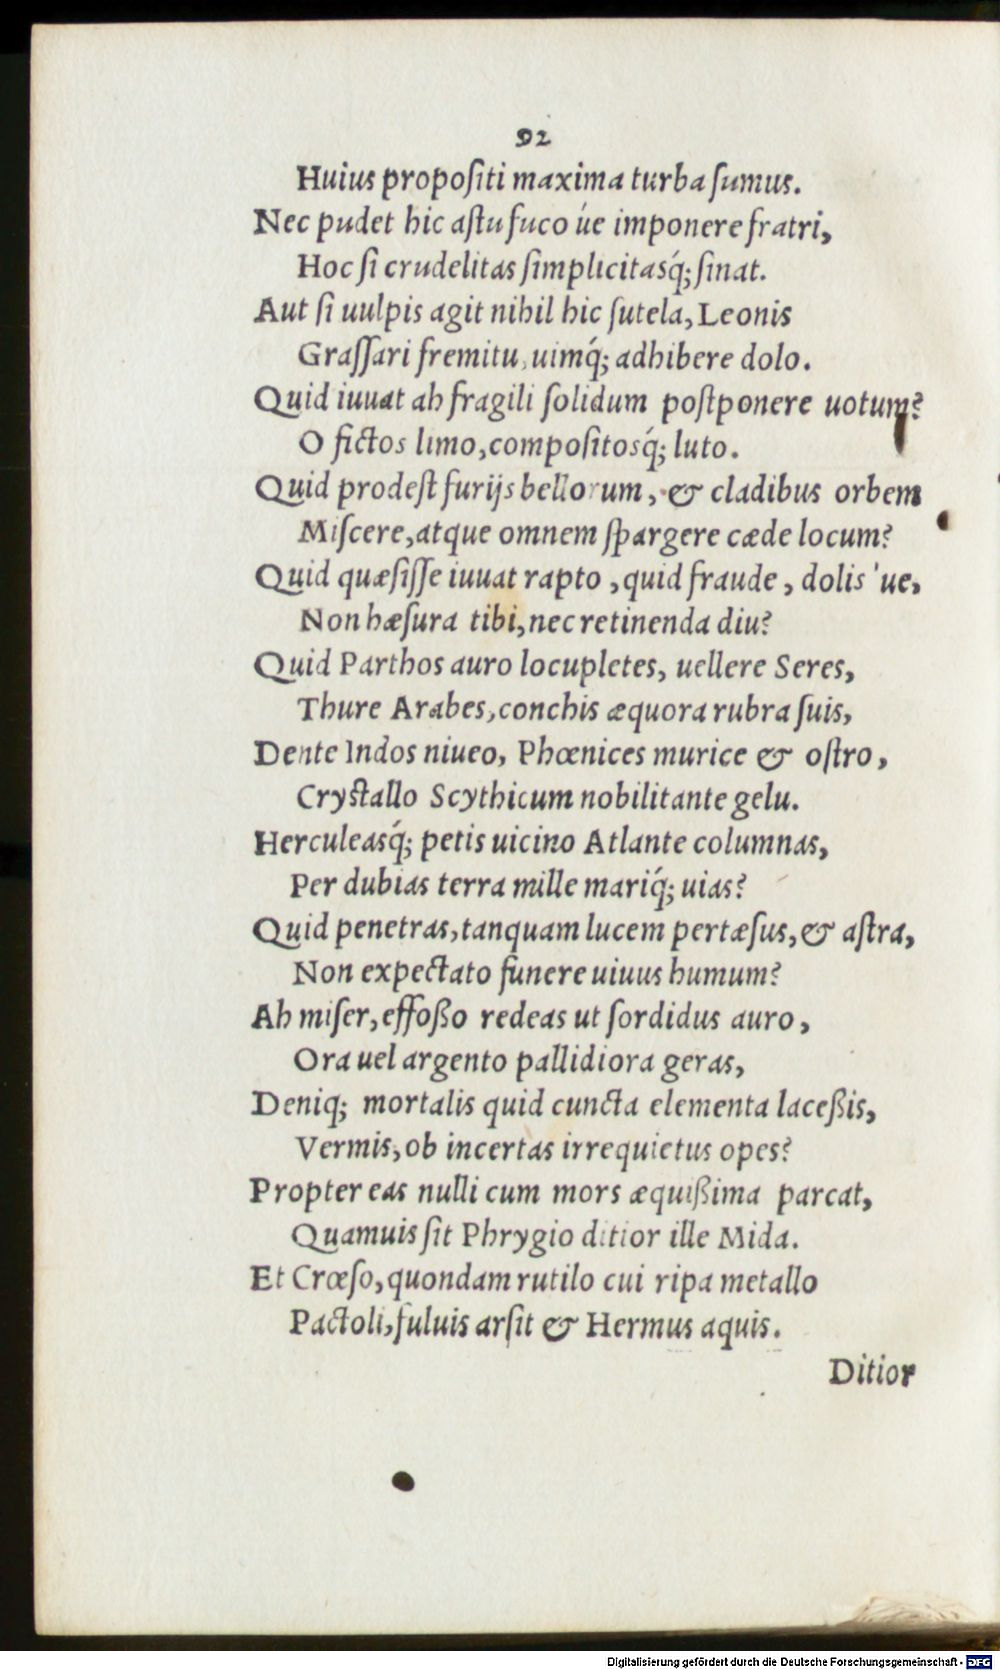 92
Huius propoſiti maxima turba ſumus.
Nec pudet hic aſtu fuco úe imponere fratri,
Hoc ſi crudelitas ſimplicitasq́; ſinat.
Aut ſi uulpis agit nihil hic ſutela, Leonis
Graſſari fremitu, uimq́; adhibere dolo.
Quid iuuat ah fragili ſolidum poſtponere uotum?
O fictos limo, compoſitosq́; luto.
Quid prodeſt furijs bellorum, & cladibus orbem
Miſcere, atque omnem ſpargere cæde locum?
Quid quæſiſſe iuuat rapto, quid fraude, dolis 'ue,
Non hæſura tibi, nec retinenda diu?
Quid Parthos auro locupletes, uellere Seres,
Thure Arabes, conchis æquora rubra ſuis,
Dente Indos niueo, Phœnices murice & oſtro,
Cryſtallo Scythicum nobilitante gelu.
Herculeasq́; petis uicino Atlante columnas,
Per dubias terra mille mariq́; uias?
Quid penetras, tanquam lucem pertæſus, & aſtra,
Non expectato funere uiuus humum?
Ah miſer, effoßo redeas ut ſordidus auro,
Ora uel argento pallidiora geras,
Deniq; mortalis quid cuncta elementa laceßis,
Vermis, ob incertas irrequietus opes?
Propter eas nulli cum mors æquißima parcat,
Quamuis ſit Phrygio ditior ille Mida.
Et Crœſo, quondam rutilo cui ripa metallo
Pactoli, fuluis arſit & Hermus aquis.
Ditior
Digitalisierung gefördert durch die Deutsche Forschungsgemeinschaft - DFG